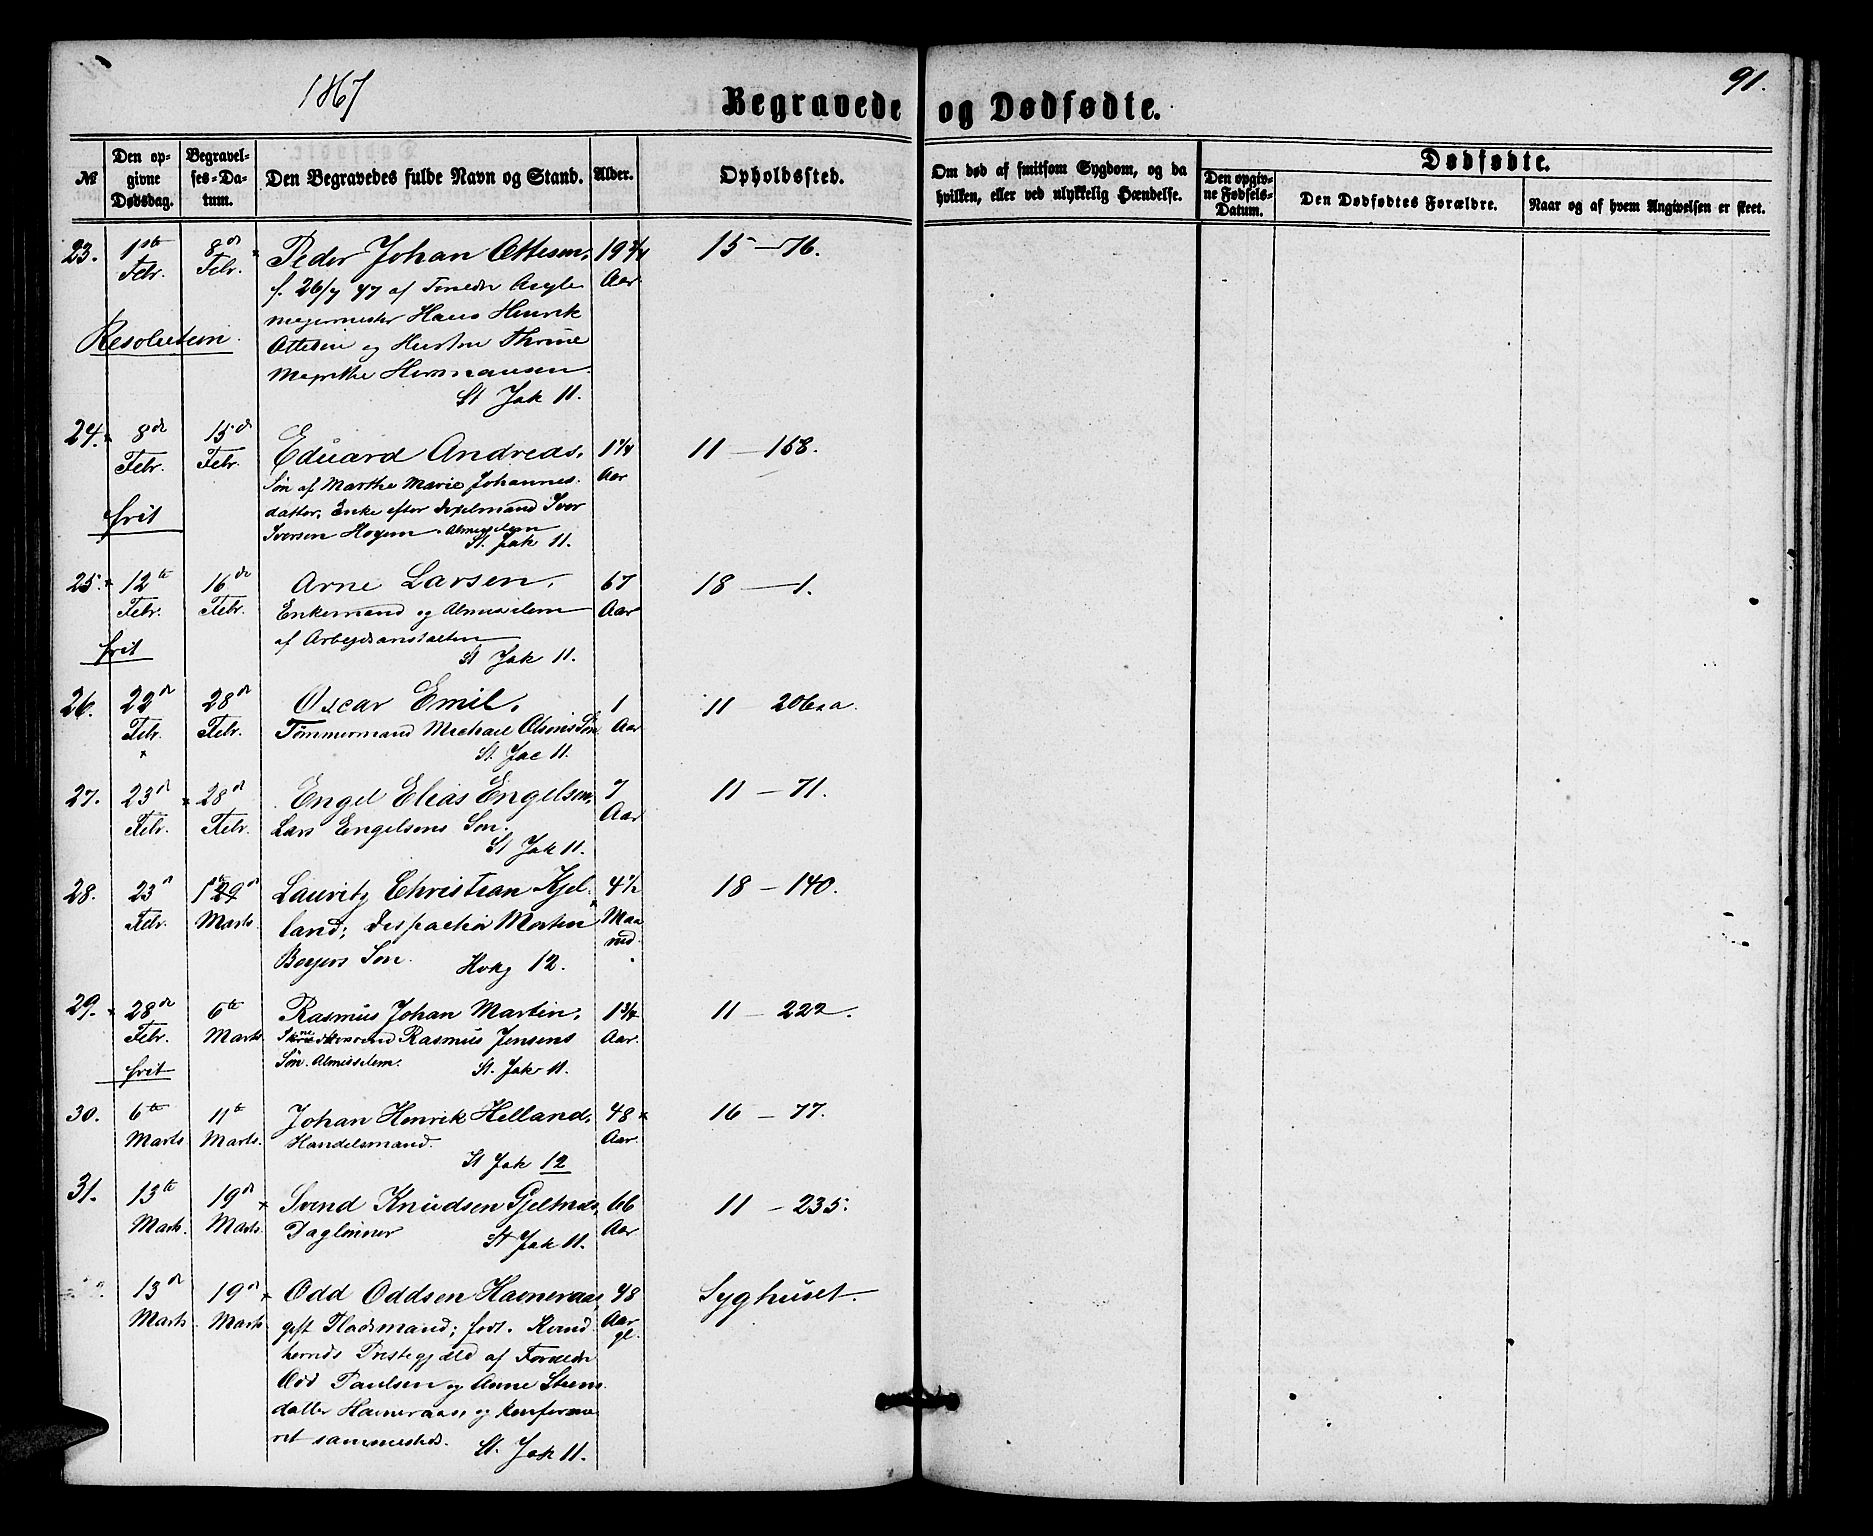 1867
91.
Begravede og Dødfødte.
№
Den opgivne Dødsdag.
Begravelses-Datum.
Den Begravedes fulde Navn og Stand.
Alder.
Opholdssted.
Om død af smitsom Sygdom, og da hvilken, eller ved ulykkelig Hændelse.
Dødfødte.
Den opgivne Fødsels-Datum.
Den Dødfødtes Forældre.
Naar og af hvem Angivelsen er skeet.
23. 1ste Febr. 8de Febr. Peder Johan Ottesen, 19 3/4 Aar 15 — 76.
f. 26/7 47 af
Hans Henrik
Resolution.
Ottesen og Hustru Thrine
Magrethe Hermansen.
St Jak 11.
24. 8de Febr. 15de Febr. Eduard Andreas, 1 1/4 Aar 11 — 158.
Søn af Marthe Marie Johannes-
datter, Enke efter Iver
frit
Iversen Almisselem
St. Jak 11.
25. 12te Febr. 16de Febr. Arne Larsen, 67 Aar 18 — 1.
Enkemand og Almisselem
af Arbejdsanstalten
frit
St Jak 11.
26. 22de Febr. 28de Febr. Oscar Emil, 1 Aar 11 — 206 a.
Tømmermand Michael Olsens Søn
St. Jac 11.
27. 23de Febr. 28de Febr. Engel Elias Engelsen, 7 Aar 11 — 71.
Lars Engelsens Søn.
St Jak 11.
28. 23de Febr. 1ste Marts Lauritz Christian Kjel- 4 1/2 Maaned. 18 — 140.
land; Dispachør Morten
Beyers Søn.
12.
29. 28de Febr. 6te Marts Rasmus Johan Martin, 1 3/4 Aar. 11 — 222.
Rasmus Jensens
Søn. Almisselem.
frit
St. Jak 11.
30. 6te Marts 11te Marts. Johan Henrik Helland, 48 Aar. 16 — 77.
Handelsmand.
St Jak 12
31. 13de Marts. 19de Marts. Svend Knudsen 66 Aar 11 — 235.
Daglønner
St Jak 11.
13de Marts. 19de Marts. Odd Oddsen Hameraas, 48 Aar gl. Syghuset.
gift Pladsmand; født. Kvind-
herreds Prestegjæld af Forældre
Odd Paulsen og Anne Steens-
datter Hameraas og konfirme-
ret sammesteds.
St. Jak 11.